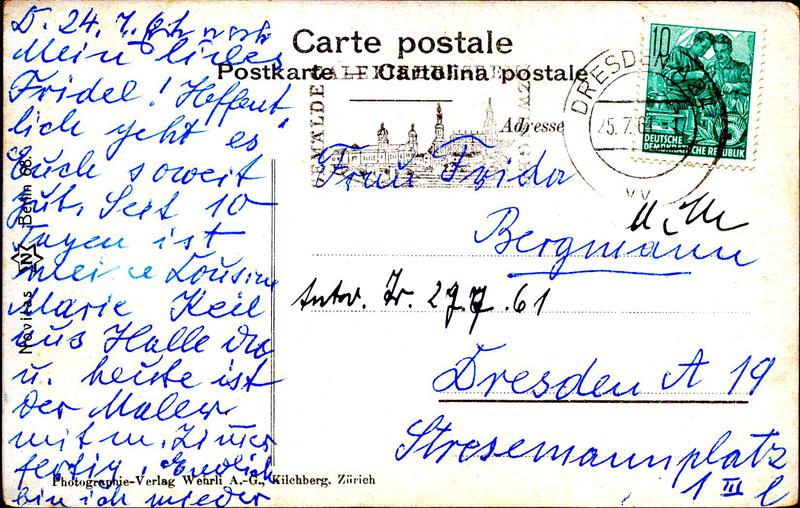 D. 24. 7.
Mein liebes
Fridel! Hoffent
lich geht es
Euch soweit
gut. Seit 10
Tagen ist
meine Cousine
Marie Keil
aus Halle da
u. heute ist
der Maler
mit m. Zimer
fertig. Endlich
bin ich wieder
Carte postale
Postkarte — Cartolina postale
Adresse
GEMÄLDE
GALERIE
DRESDEN
25.7.61
10
DEUTSCHE
DEMOKRATISCHE REPUBLIK
5
Frau Frida
Bergmann
Antw. Fr. 27.7.61
Dresden A 19
Stresemannplatz
1 III l
Novitas Berlin 68
Photographie-Verlag Wehrli A.-G., Kilchberg, Zürich